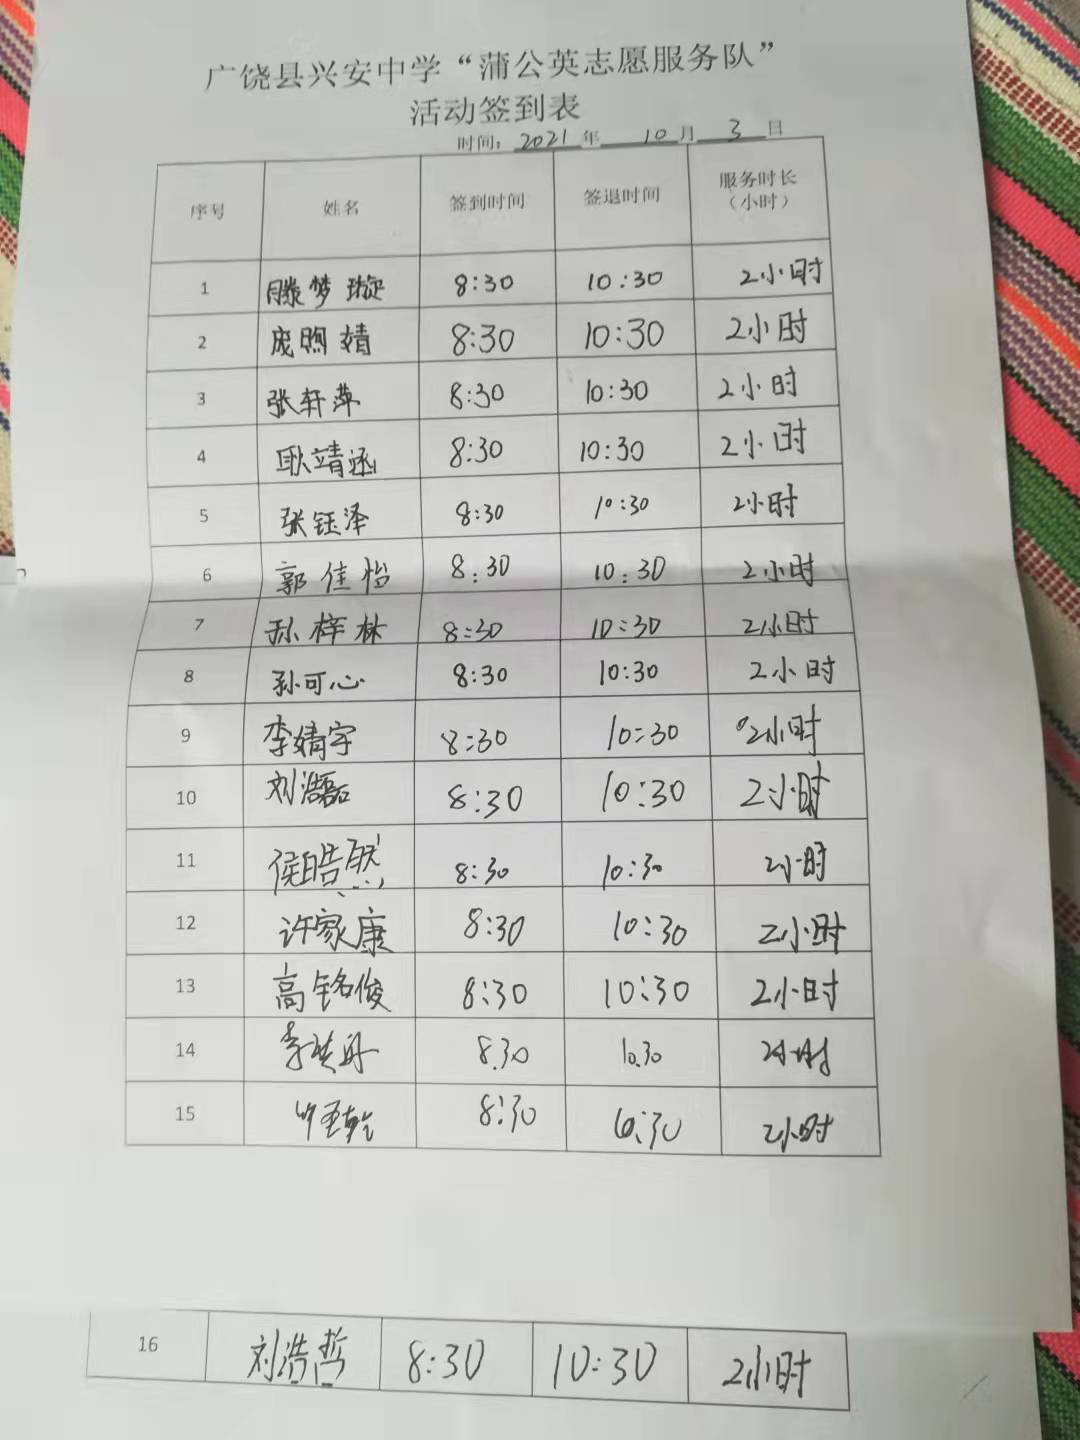 广饶县兴安中学“蒲公英志愿服务队”
活动签到表
时间：2021年10月3日
序号 姓名 签到时间 签退时间 服务时长（小时）
1 滕梦璇 8:30 10:30 2小时
2 庞煦婧 8:30 10:30 2小时
3 张轩萍 8:30 10:30 2小时
4 耿靖涵 8:30 10:30 2小时
5 张钰泽 8:30 10:30 2小时
6 郭佳怡 8:30 10:30 2小时
7 孙梓林 8:30 10:30 2小时
8 孙可心 8:30 10:30 2小时
9 李婧宇 8:30 10:30 2小时
10 刘浩磊 8:30 10:30 2小时
11 侯皓然 8:30 10:30 2小时
12 许家康 8:30 10:30 2小时
13 高铭俊 8:30 10:30 2小时
14 李 8.30 10.30 2小时
15 8:30 10:30 2小时
16 刘浩哲 8:30 10:30 2小时